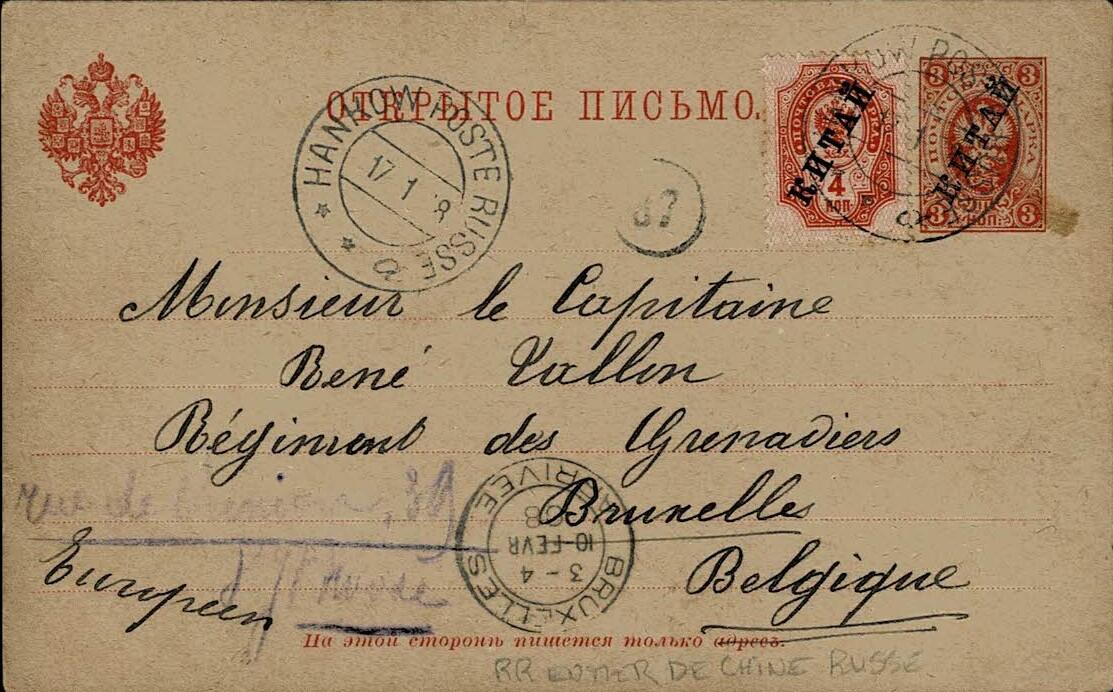 ОТКРЫТОЕ ПИСЬМО.
HANKOW POSTE RUSSE
17 1
ПОЧТОВАЯ МАРКА
КИТАЙ
4
КОП.
HANKOW POSTE
3 3
ПОЧТОВАЯ МАРКА
КИТАЙ
3 КОП. 3
Monsieur le Capitaine
René Vallon
Régiment des Grenadiers
Bruxelles
Belgique
rue de , 39
Européen
BRUXELLES ARRIVÉE
3 - 4
10 - FEVR
98
На этой сторонѣ пишется только адресъ.
RR ENTIER DE CHINE RUSSE